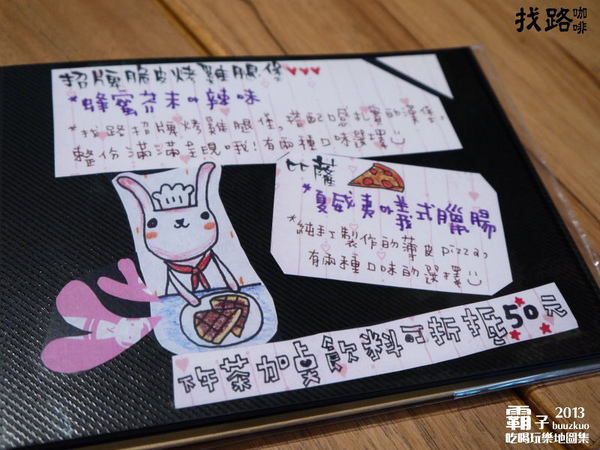 找路咖啡
招牌脆皮烤雞腿堡♥♥♥
*蜂蜜芥末、辣味
*找路招牌烤雞腿堡, 搭配口感扎實的漢堡,
整份滿滿呈現哦!有兩種口味選擇
比薩
*夏威夷、義式臘腸
*純手工製作的薄皮pizza,
有兩種口味的選擇
下午茶加點飲料可折抵50元
霸子 2013
buuzkuo
吃喝玩樂地圖集